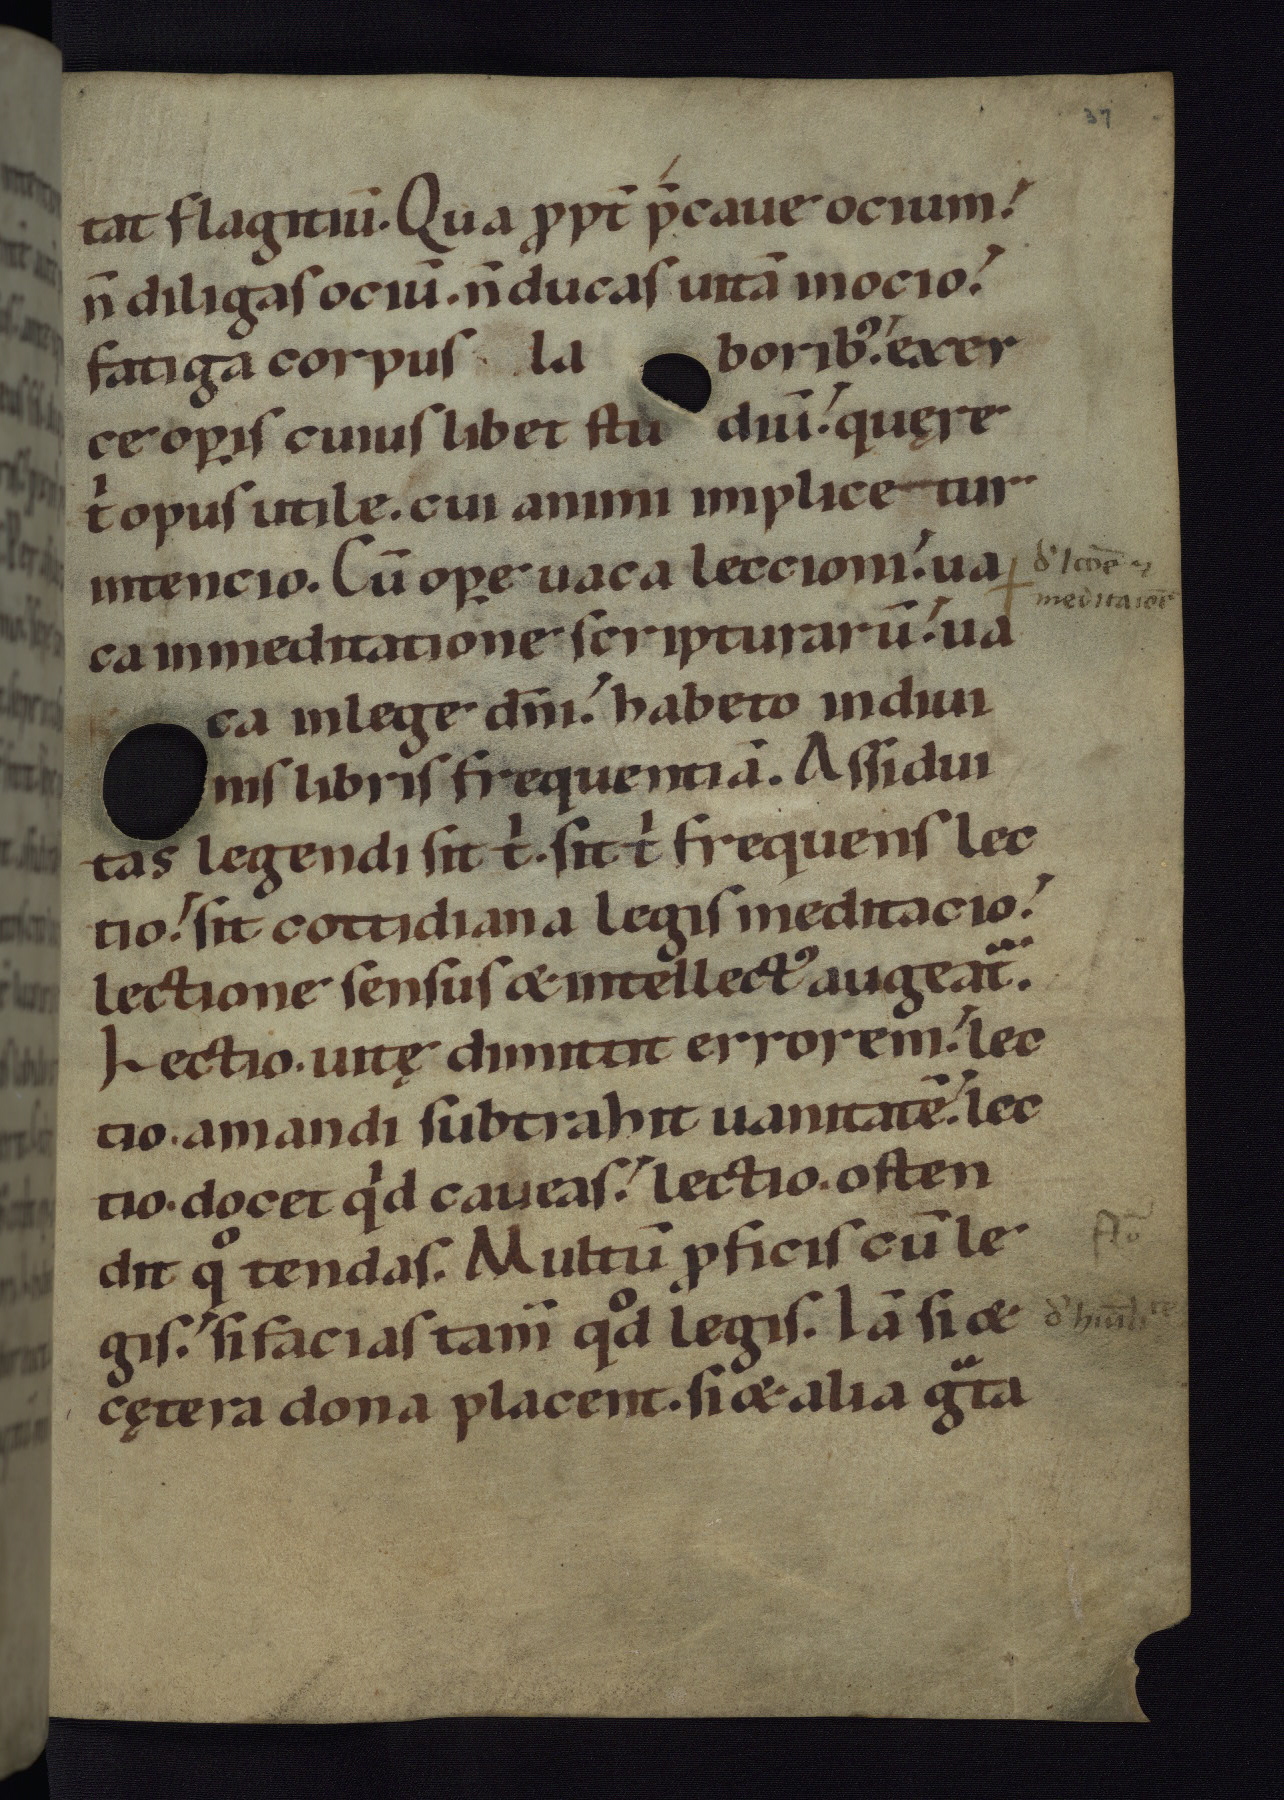 37
tat flagitiū. Qua ꝓpt̄ p̄caue ocium!
n̄ diligas ociū. n̄ ducas uitā in ocio!
fatiga corpus la boribꝰ! exer
ce oꝑis cuius libet stu diū! quęre
t̍ opus utile. cui animi implice tur
intencio. Cū oꝑe uaca leccioni! ua
ca in meditatione scripturarū! ua
ca in lege dn̄i! habeto in diui
nis libris frequentiā. Assidui
tas legendi sit t̍. sit t̍ frequens lec
tio! sit cottidiana legis meditacio!
lectione sensus & intellectꝰ augeat̄.
Lectio. uitę dimittit errorem! lec
tio. amandi subtrahit uanitatē! lec
tio. docet qͥd caueas! lectio. osten
dit qͦ tendas. Multū ꝓficis cū le
gis! si facias tam̄ qͦd legis. Iā si &
cętera dona placent. si & alia gᷓta
meditaciōe